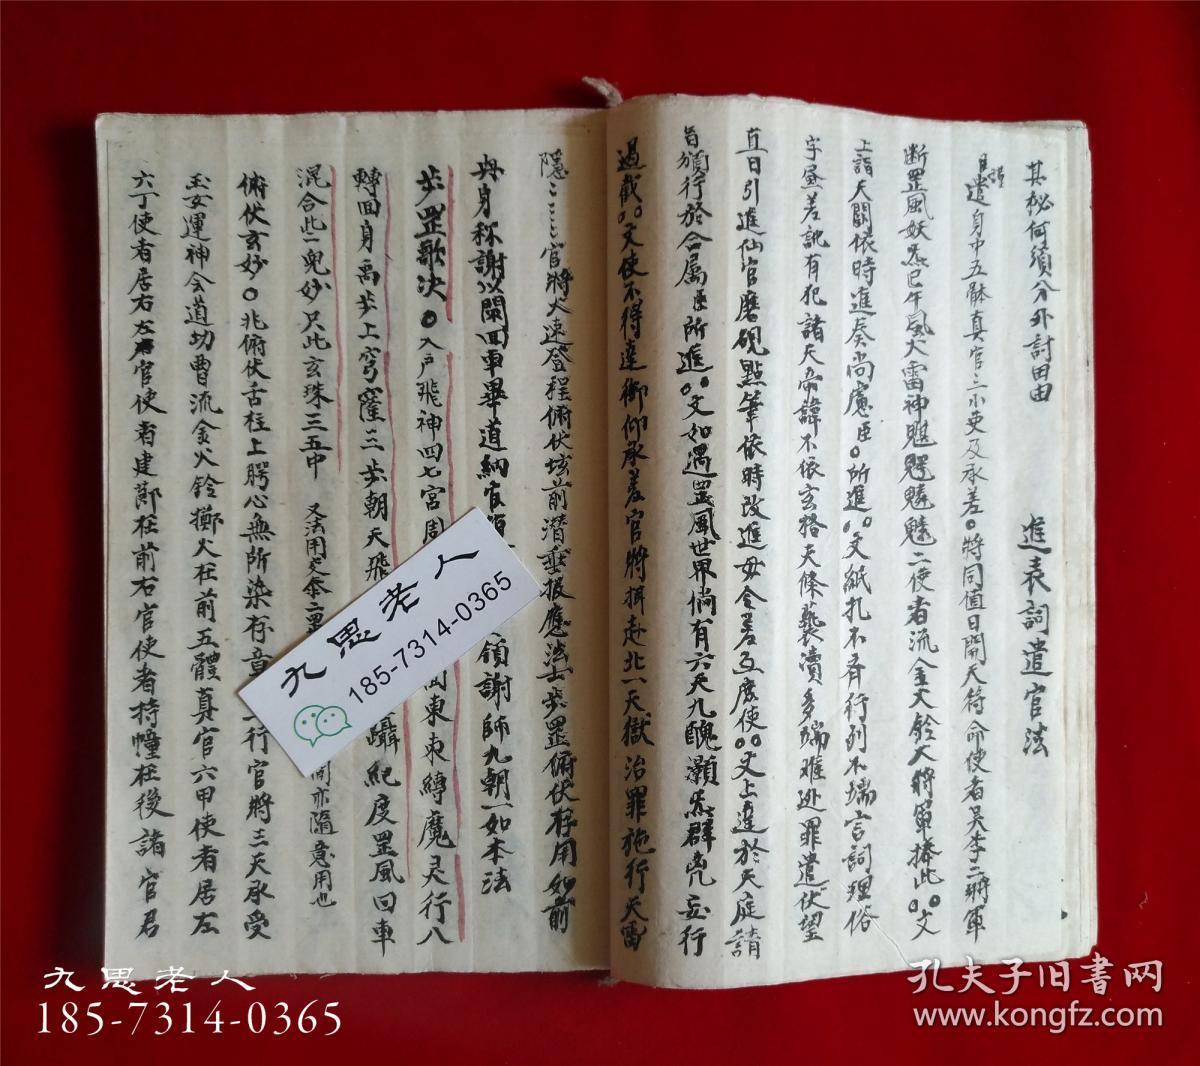 其秘何須分外討田由　進表詞遣官法
謹遣身中五體真官三小吏及承差○將同值日開天符命使者吳李二將軍
断罡風妖炁巳午風火雷神魋魍魑魅二使者流金火鈴大將軍捧此○○文
上詣天闕依時進奏尚慮臣○所進○○文紙扎不齊行列不端言詞理俗
字昼差訛有犯諸天帝諱不依玄格天條褻瀆多端难逃罪遣伏望
直日引進仙官磨硯點筆依時改進毋令差互庶使○○文上達於天庭請
旨頒行於合属臣所進○○文如遇罡風世界倘有六天九醜灝炁群兇妄行
過截○○文使不得達御仰承差官將捐赴北一天獄治罪施行天雷
隱官將火速登程俯伏垓前潜垂报應法士步罡俯伏存用如前
與身称謝以関回車畢道納官
領謝師九朝一如本法
步罡歌决○入户飛神四七宮周
東束縛魔灵行八
轉回身禹步上穹窿三步朝天飛
躡紀度罡風回車
混合此一兜妙只此玄珠三五中　又法用
亦隨意用也
俯伏玄妙○北俯伏舌柱上腭心無所染存章
行官將三天承受
玉女運神会道功曹流金火铃擲火在前五體真官六甲使者居左
六丁使者居右左官使者建節在前右官使者持幢在後諸官君
九思老人
185-7314-0365
九思老人
185-7314-0365
孔夫子旧書网
www.kongfz.com